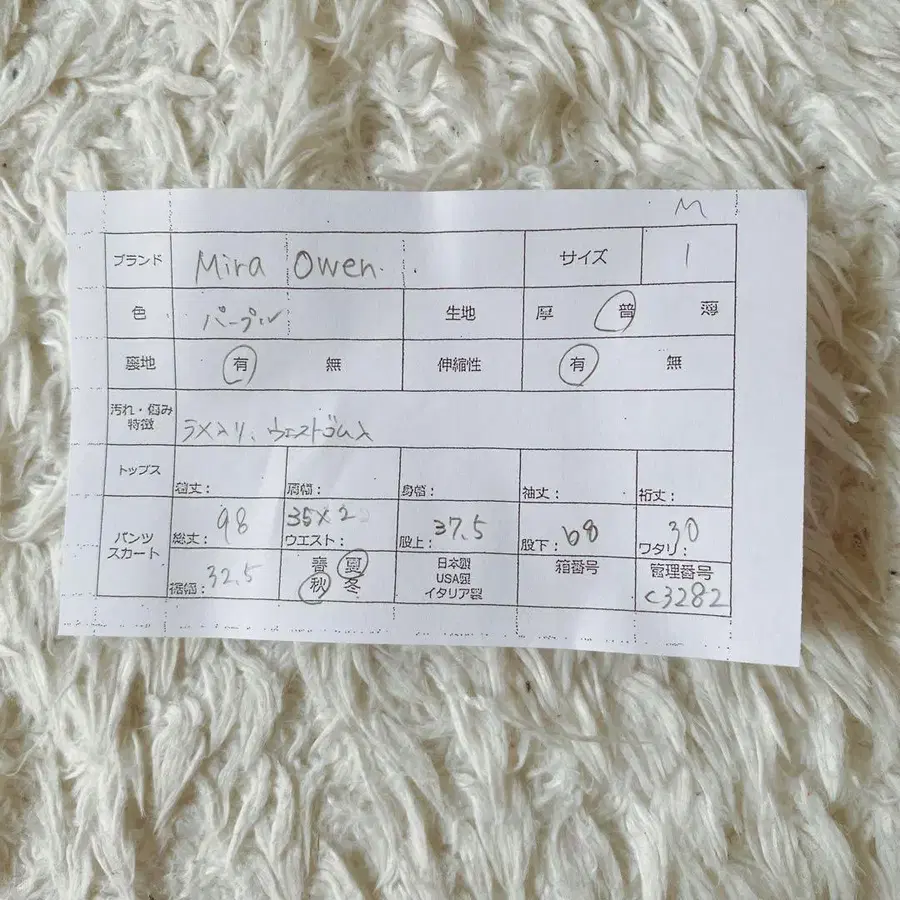 M
ブランド Mira Owen サイズ 1
色 パープル 生地 厚 普 薄
裏地 有 無 伸縮性 有 無
汚れ・傷み
特徴 ラメ入り、ウエストゴム入
トップス 着丈: 肩幅: 身幅: 袖丈: 裄丈:
パンツ
スカート 総丈: 98 ウエスト: 35×2 股上: 37.5 股下: 68 ワタリ: 30
裾幅: 32.5 春 夏 秋 冬 日本製 USA製 イタリア製 箱番号 管理番号 C3282